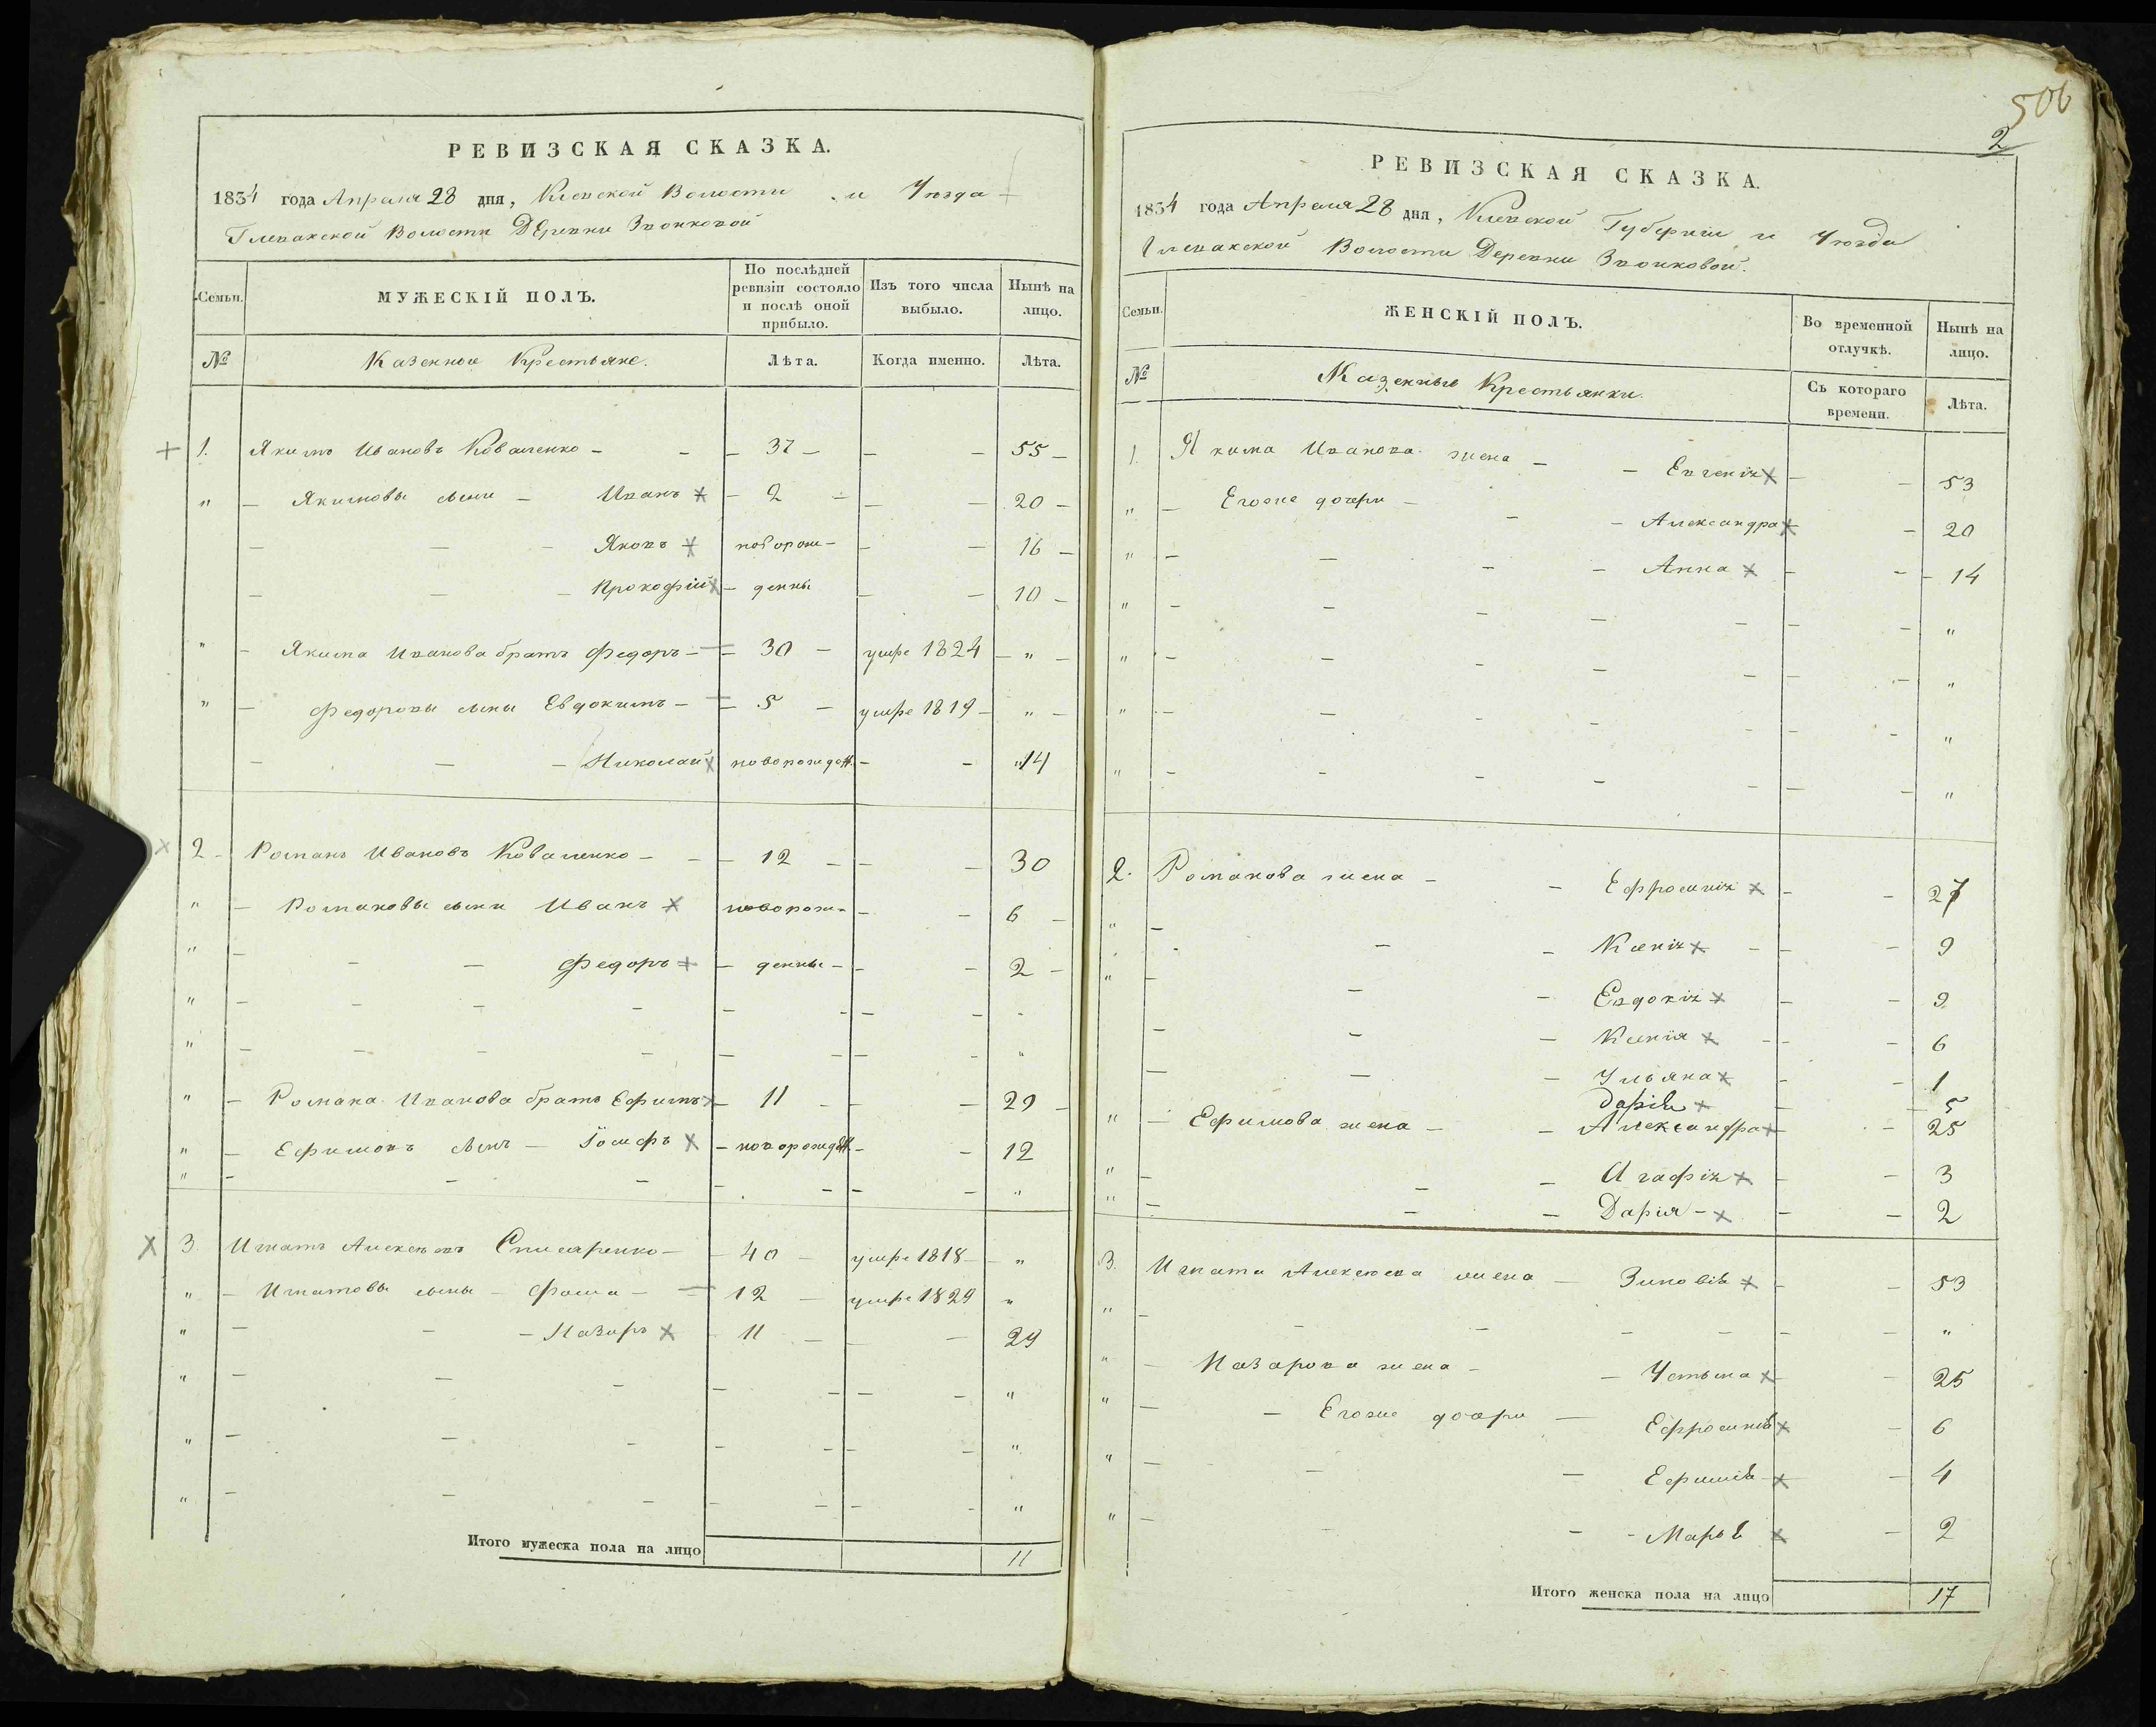 РЕВИЗСКАЯ СКАЗКА.
1834 года Апреля 28 дня, Киевской Волости и Уезда
Глевакской Волости Деревни Звонковой
Семьи. МУЖЕСКІЙ ПОЛЪ. По послѣдней ревизіи состояло и послѣ оной прибыло. Изъ того числа выбыло. Нынѣ на лицо.
№ Казенные Крестьяне. Лѣта. Когда именно. Лѣта.
1. Якимъ Ивановъ Коваленко - - 37 - - - 55 -
" - Якимовы сыни - Иванъ - 2 - - - 20 -
- - - Яковъ новорож- - - 16 -
- - - Прокофій - денны - - 10 -
" - Якима Иванова братъ Федоръ - 30 - умре 1824 - " -
" - Федоровы сыны Евдокимъ - 5 - умре 1819 - " -
- - - Николай новорожден. - - 14
2 - Романъ Ивановъ Коваленко - - - 12 - - - 30
" - Романовы сыни Иванъ новорож- - - 6 -
" - - - Федоръ - денны - - - 2 -
" - - - - - - - - -
" - - - - - - - - "
" - Романа Иванова братъ Ефимъ - 11 - - - 29 -
" - Ефимовъ сынъ - Іосифъ - новорожден. - - 12
" - - - - - - - "
3. Игнатъ Алексѣевъ Списаренко - - 40 - умре 1818 - "
" - Игнатовы сыны - Фома - 12 - умре 1829 "
" - - - Назаръ - 11 - - 29
" - - - - - - - "
" - - - - - - - "
" - - - - - - - "
Итого мужеска пола на лицо 11
506
2
РЕВИЗСКАЯ СКАЗКА.
1834 года Апреля 28 дня, Киевской Губерніи и Уезда
Глевакской Волости Деревни Звонковой.
Семьи. ЖЕНСКІЙ ПОЛЪ. Во временной отлучкѣ. Нынѣ на лицо.
№ Казенные Крестьянки. Съ котораго времени. Лѣта.
1. Якима Иванова жена - - Евгенія - - 53
" - Егоже дочери - - - Александра - 20
" - - - - Анна - - - 14
" - - - - - - "
" - - - - - - "
" - - - - - - "
" - - - - - - "
2. Романова жена - - Ефросинія - - 27
" - - - Ксенія - - - 9
" - - - Евдокія - - 9
- - - Ксенія - - - 6
- - - Ульяна - - 1
Дарія - - 5
" - Ефимова жена - - Александра - 25
" - - - Агафія - - 3
" - - - Дарія - - - 2
3. Игната Алексеева жена - Зиновія - - 53
" - - - - - - - "
" - Назарова жена - - Устьина - 25
" - - Егоже дочери - Ефросинія - 6
" - - - Ефимія - - 4
" - - - - Марья - 2
Итого женска пола на лицо 17